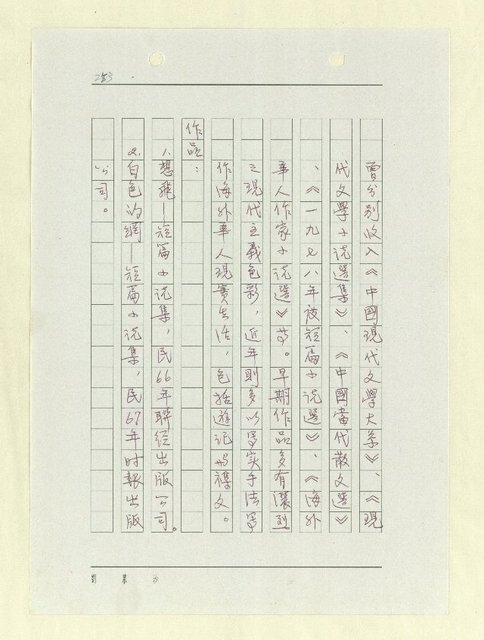 253
曾分別收入《中國現代文學大系》、《現
代文學小說選集》、《中國當代散文選》
、《一九七八年度短篇小說選》、《海外
華人作家小說選》等。早期作品多有濃烈
之現代主義色彩，近年則多以寫實手法寫
作海外華人現實生活，包括遊記與雜文。
作品：
1.想飛—短篇小說集，民66年聯經出版公司。
2.白色的網—短篇小說集，民67年時報出版
公司。